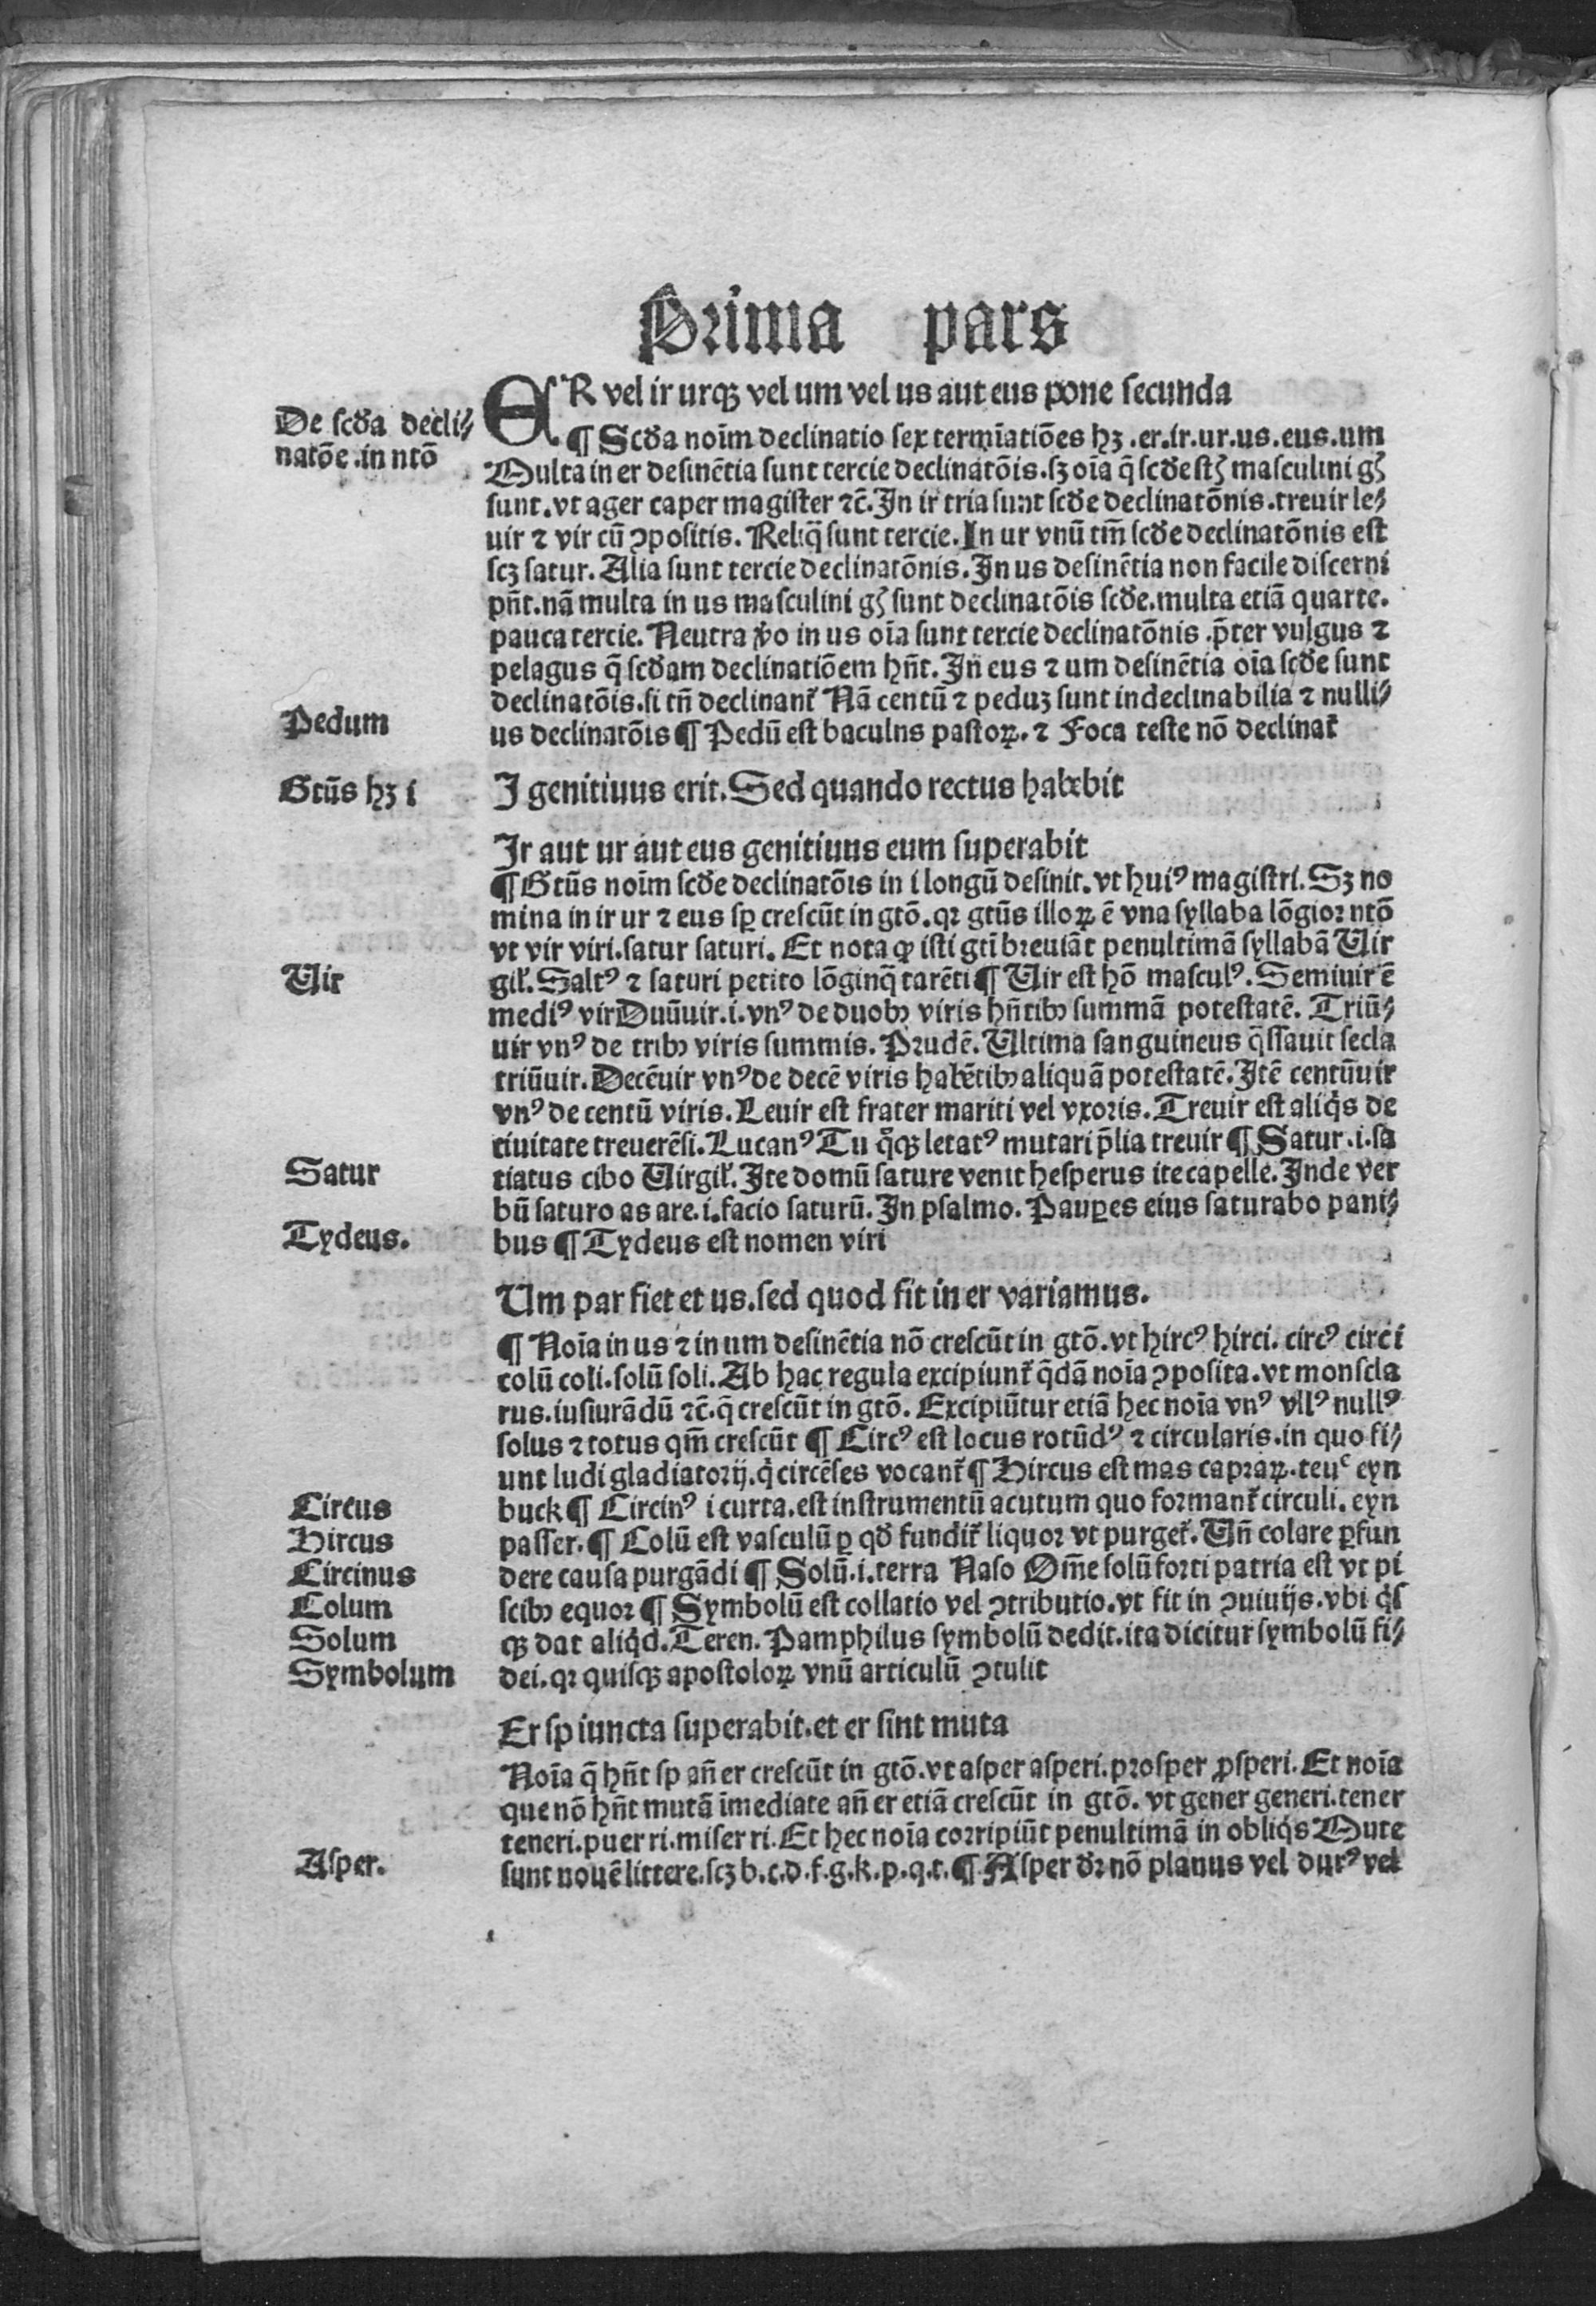 Prima pars
ER vel ir urqꝫ vel um vel us aut eus pone ſecunda
De ſcďa decli⸗
natōe .in ntō
¶ Scďa noīm declinatio ſex termīatiōes hꝫ .er.ir.ur.us.eus.um
Multa in er deſinētia ſunt tercie declinatōis.ſꝫ oīa q̄ ſcďe ſt̉ maſculini g̉
ſunt.vt ager caper magiſter ⁊c̄. In ir tria ſunt ſcďe declinatōnis.treuir le⸗
uir ⁊ vir cū ↄpoſitis. Reliq̄ ſunt tercie. In ur vnū tm̄ ſcďe declinatōnis eſt
ſcꝫ ſatur. Alia ſunt tercie declinatōnis. In us deſinētia non facile diſcerni
pn̄t.nā multa in us maſculini g̉ ſunt declinatōis ſcďe.multa etiā quarte.
pauca tercie. Neutra ꝟo in us oīa ſunt tercie declinatōnis .p̄ter vulgus ⁊
pelagus q̄ ſcďam declinatiōem hn̄t. In eus ⁊ um deſinētia oīa ſcďe ſunt
declinatōis.ſi tn̄ declinant᷑ Nā centū ⁊ peduꝫ ſunt indeclinabilia ⁊ nulli⸗
Pedum
us declinatōis ¶ Pedū eſt baculns paſtoꝝ. ⁊ Foca teſte nō declinat᷑
Gtūs hꝫ i
I genitiuus erit. Sed quando rectus habebit
Ir aut ur aut eus genitiuus eum ſuperabit
¶ Gtūs noīm ſcďe declinatōis in i longū deſinit. vt huiꝰ magiſtri. Sꝫ no
mina in ir ur ⁊ eus ſꝑ creſcūt in gtō.qꝛ gtūs illoꝝ ē vna ſyllaba lōgioꝛ ntō
vt vir viri.ſatur ſaturi. Et nota ꝙ iſti gtī bꝛeuiāt penultimā ſyllabā Uir
Uir
gil̓. Saltꝰ ⁊ ſaturi petito lōginq̄ tarēti ¶ Uir eſt hō maſculꝰ. Semiuir ē
mediꝰ vir Duūuir.i.vnꝰ de duobꝰ viris hn̄tibꝰ ſummā poteſtatē. Triū⸗
uir vnꝰ de tribꝰ viris ſummis. Pꝛudē. Ultima ſanguineus q̄ſſauit ſecla
triūuir. Decēuir vnꝰ de decē viris habētibꝰ aliquā poteſtatē. Itē centūuir
vnꝰ de centū viris. Leuir eſt frater mariti vel vxoris. Treuir eſt aliq̇s de
ciuitate treuerēſi. Lucanꝰ Tu q̊qꝫ letatꝰ mutari p̄lia treuir ¶ Satur .i.ſa
Satur
tiatus cibo Uirgil̓. Ite domū ſature venit heſperus ite capelle. Inde ver
bū ſaturo as are.i.facio ſaturū. In pſalmo. Pauꝑes eius ſaturabo pani⸗
Tydeus.
bus ¶ Tydeus eſt nomen viri
Um par fiet et us.ſed quod fit in er variamus.
¶ Noīa in us ⁊ in um deſinētia nō creſcūt in gtō.vt hircꝰ hirci. circꝰ circi
colū coli.ſolū ſoli. Ab hac regula excipiunt᷑ q̄dā noīa ↄpoſita.vt monſcla
rus.iuſiurādū ⁊c̄.q̄ creſcūt in gtō. Excipiūtur etiā hec noīa vnꝰ vllꝰ nullꝰ
ſolus ⁊ totus qm̄ creſcūt ¶ Circꝰ eſt locus rotūdꝰ ⁊ circularis.in quo fi⸗
unt ludi gladiatorij.q̇ circēſes vocant᷑ ¶ Hircus eſt mas capꝛaꝝ.teuᶜ eyn
Circus
buck ¶ Circinꝰ i curta.eſt inſtrumentū acutum quo foꝛmant᷑ circuli. eyn
Hircus
paſſer. ¶ Colū eſt vaſculū ꝑ qď fundit᷑ liquoꝛ vt purget᷑. Un̄ colare ꝑfun
Circinus
dere cauſa purgādi ¶ Solū.i.terra Naſo Om̄e ſolū foꝛti patria eſt vt pi
Colum
ſcibꝰ equoꝛ ¶ Symbolū eſt collatio vel ↄtributio.vt fit in ↄuiuijs.vbi q̇ſ
Solum
qꝫ dat aliq̇d. Teren. Pamphilus ſymbolū dedit.ita dicitur ſymbolū fi⸗
Symbolum
dei.qꝛ quiſqꝫ apoſtoloꝝ vnū articulū ↄtulit
Er ſp iuncta ſuperabit.et er ſint muta
Noīa q̄ hn̄t ſp an̄ er creſcūt in gtō.vt aſper aſperi.pꝛoſper ꝓſperi. Et noīa
que nō hn̄t mutā īmediate an̄ er etiā creſcūt in gtō. vt gener generi.tener
teneri.puer ri.miſer ri. Et hec noīa coꝛripiūt penultimā in obliq̇s Mute
Aſper.
ſunt nouē littere.ſcꝫ b.c.d.f.g.k.p.q.t. ¶ Aſper ďꝛ nō planus vel durꝰ vel